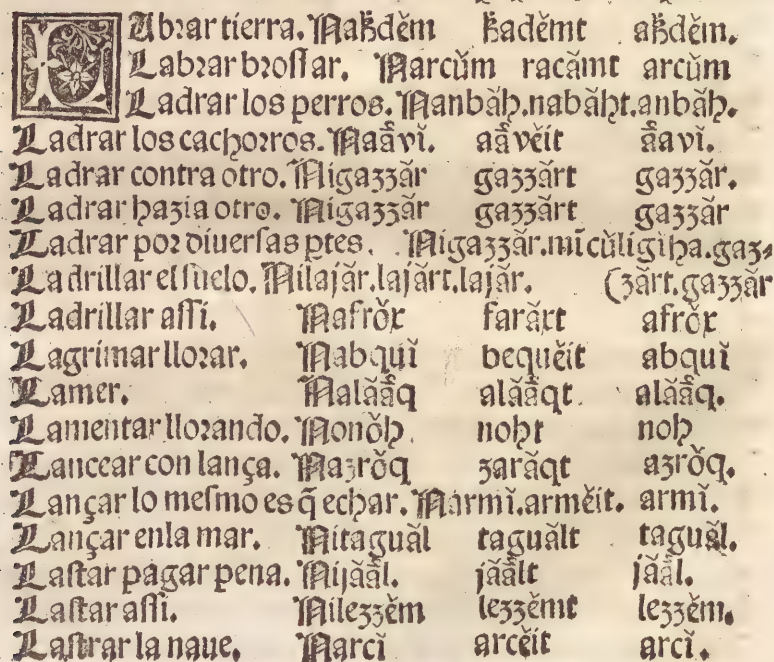 LAbrar tierra. Nakdĕm kadĕmt akdĕm.
Labrar broſlar. Narcŭm racămt arcŭm
Ladrar los perros. Nanbăh. nabăht. anbăh.
Ladrar los cachorros. Naăvĭ. aăvĕit ăavĭ.
Ladrar contra otro. Nigazzăr gazzărt gazzăr.
Ladrar hazia otro. Nigazzăr gazzărt gazzăr
Ladrar por diuerſas ptes. Nigazzăr. mĭ cŭligiha. gaz-
Ladrillar el ſuelo. Nilajăr. lajărt. lajăr. (zărt. gazzăr
Ladrillar aſſi. Nafrŏx farăxt afrŏx
Lagrimar llorar. Nabquĭ bequĕit abquĭ
Lamer. Nalăăq alăăqt alăăq.
Lamentar llorando. Nonŏh noht noh
Lancear con lança. Nazrŏq zarăqt azrŏq.
Lançar lo meſmo es q̃ echar. Narmĭ. armĕit. armĭ.
Lançar enla mar. Nitaguăl taguălt taguăl.
Laſtar pagar pena. Nijăăl. jăălt jăăl.
Laſtar aſſi. Nilezzĕm lezzĕmt lezzĕm.
Laſtrar la naue. Narcĭ arcĕit arcĭ.